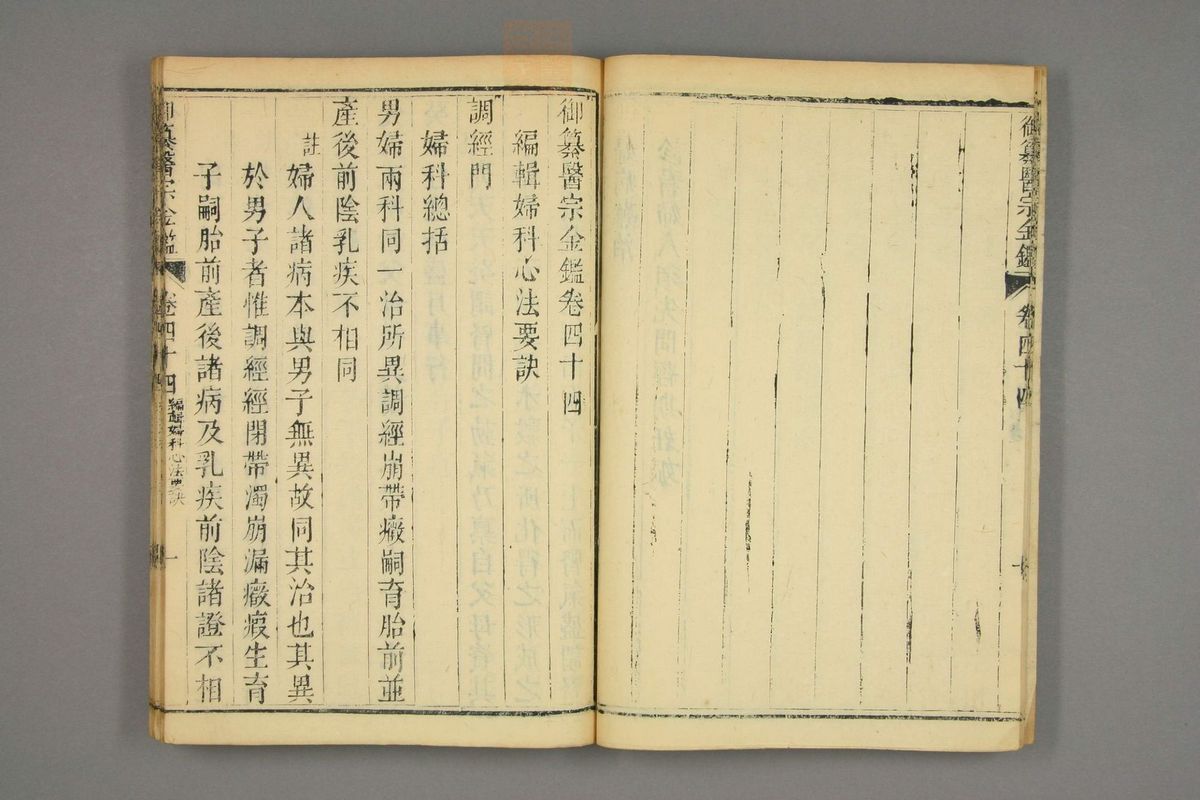 御纂醫宗金鑑 卷四十四 一
御纂醫宗金鑑卷四十四
編輯婦科心法要訣
調經門
婦科總括
男婦兩科同一治所異調經崩帶癥嗣育胎前並
產後前陰乳疾不相同
註婦人諸病本與男子無異故同其治也其異
於男子者惟調經經閉帶濁崩漏癥瘕生育
子嗣胎前產後諸病及乳疾前陰諸證不相
御纂醫宗金鑑 卷四十四 編輯婦科心法要訣 一